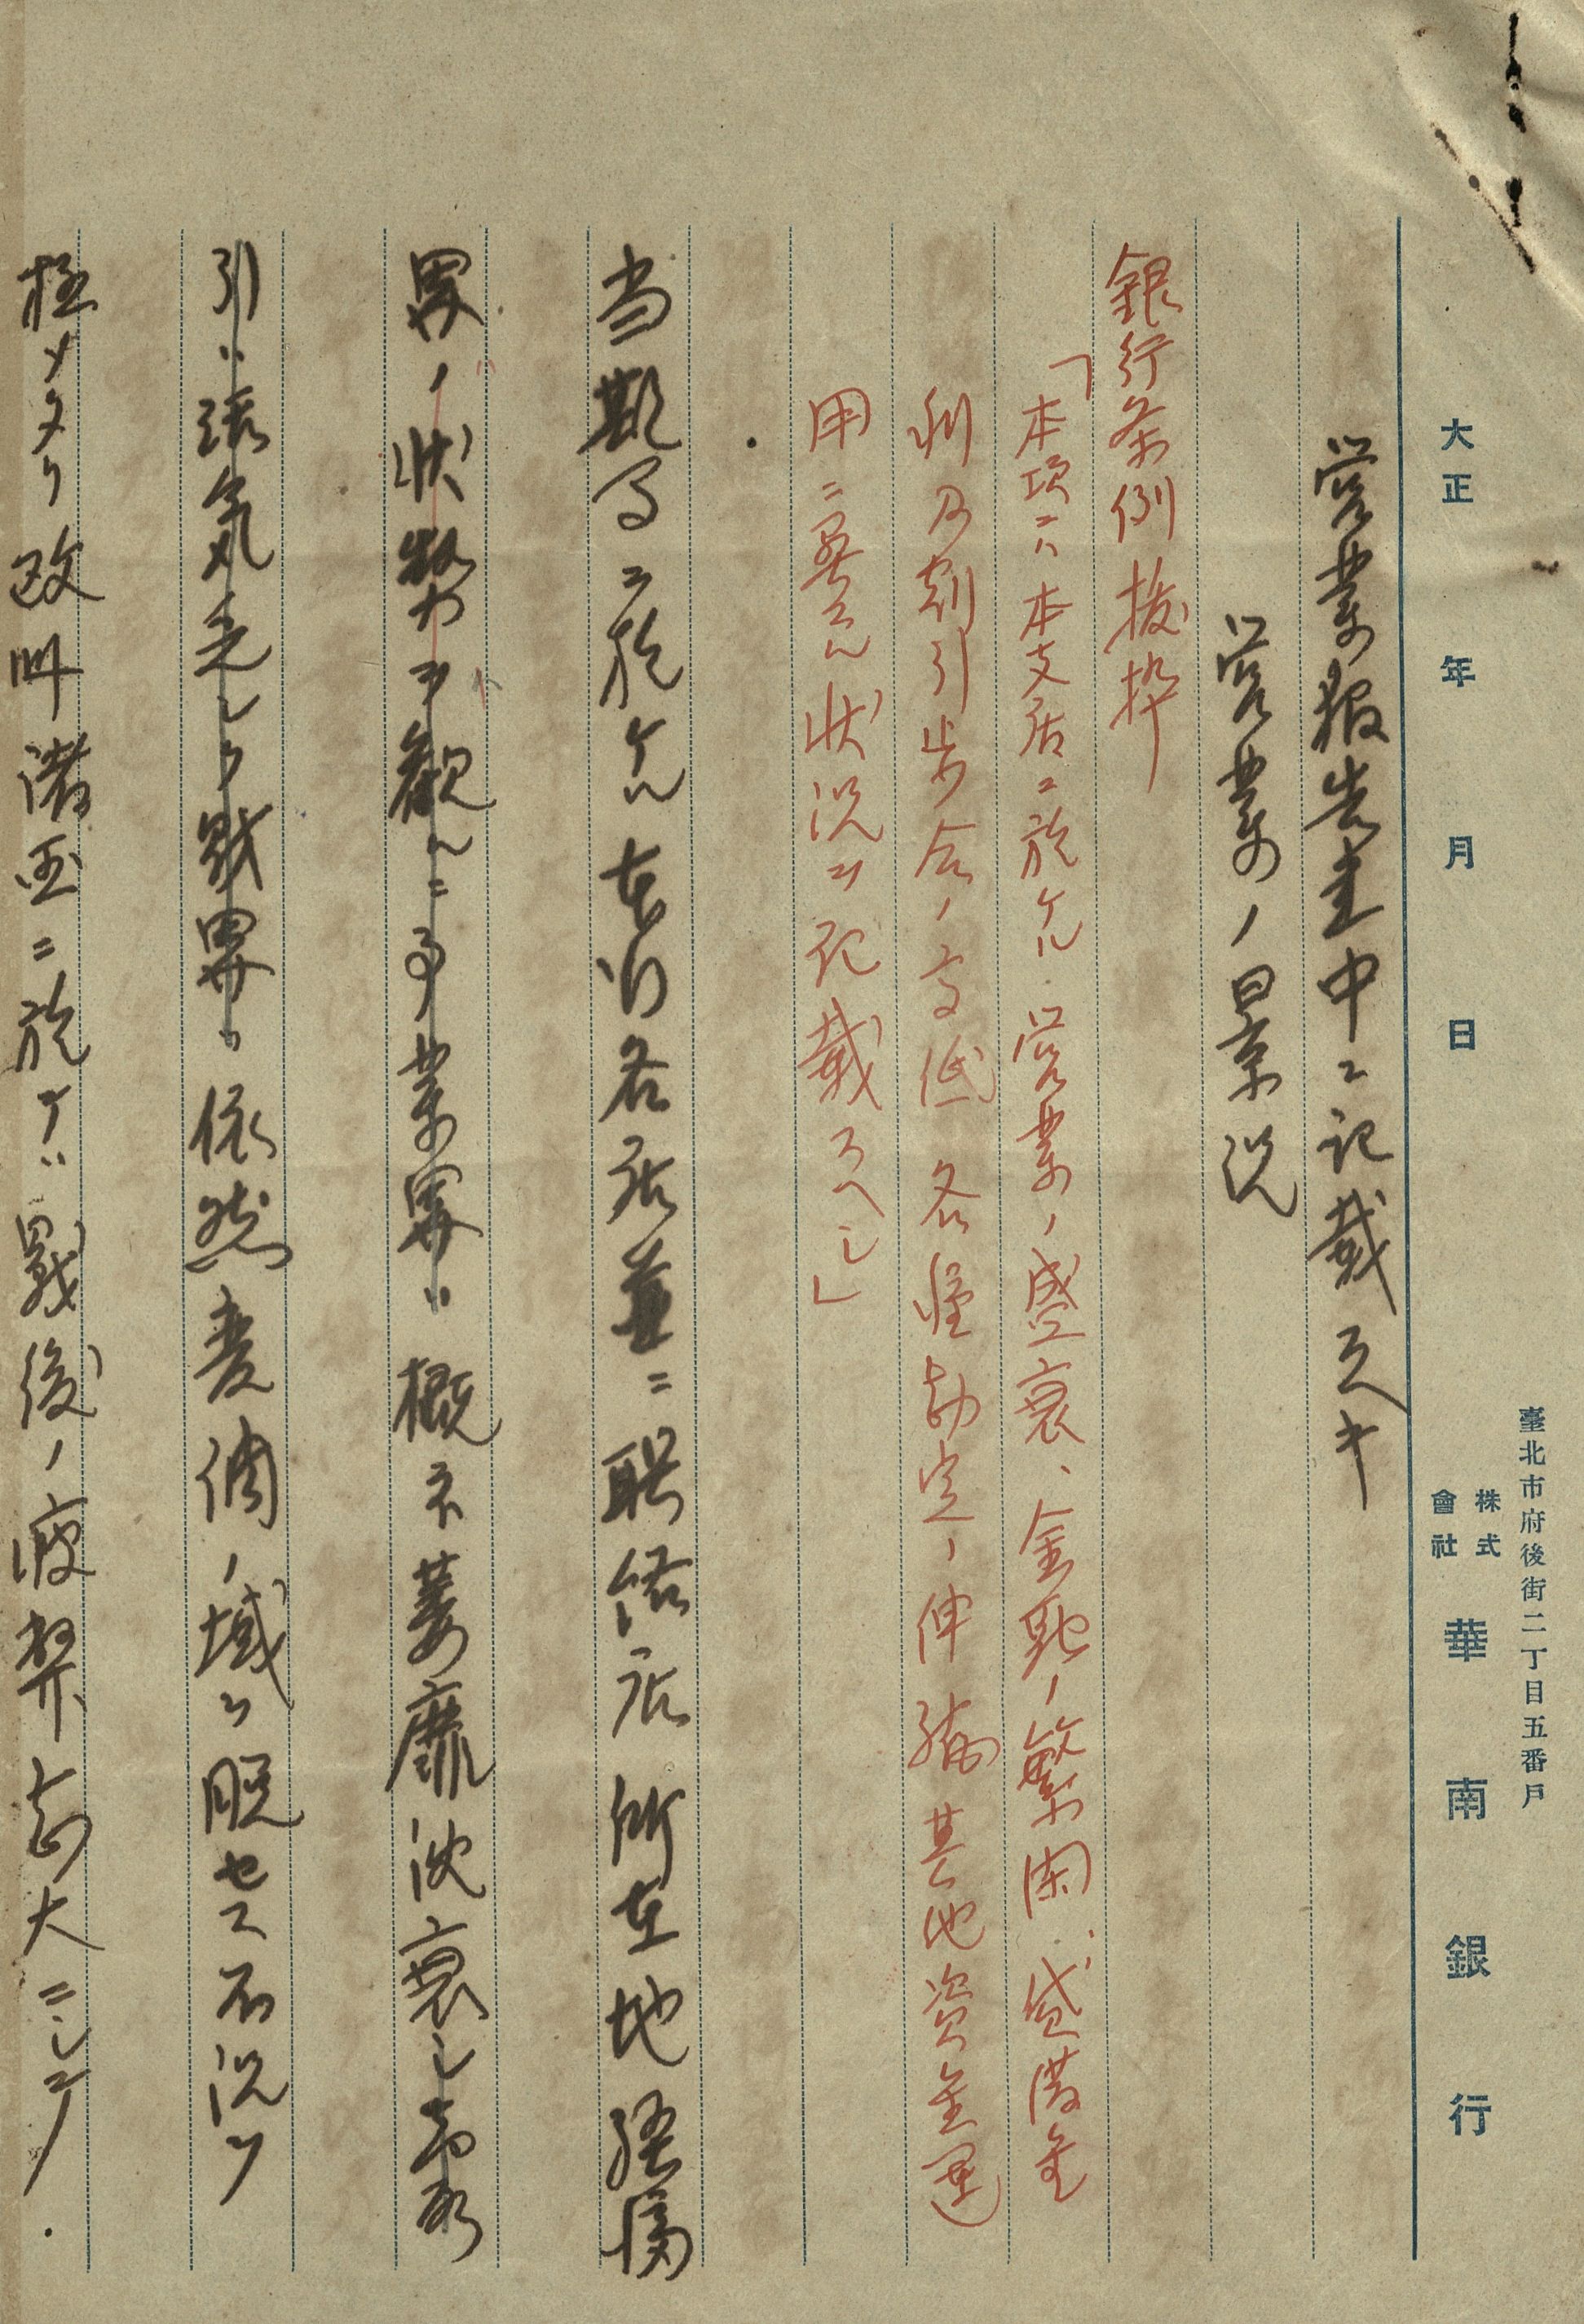 臺北市府後街二丁目五番戶
大正 年 月 日 株式會社 華南銀行
営業報告書中ニ記載スヘキ
営業ノ景況
銀行条例抜粋
「本項ニハ本支店ニ於ケル営業ノ盛衰、金融ノ繁閑、貸借金
利及割引歩合ノ高低 各種勘定ノ伸縮其他資金運
用ニ要スル状況ヲ記載スヘシ」
当期間ニ於ケル本行各店並ニ聯絡店所在地経済
界ノ状勢ヲ観ルニ事業界ハ概ネ萎靡沈衰シ商取
引ハ活気乏シク財界ハ依然凋ノ域ヲ脱セス不況ヲ
極メタリ政府諸画ニ於テハ戦後ノ疲弊甚大ニシテ